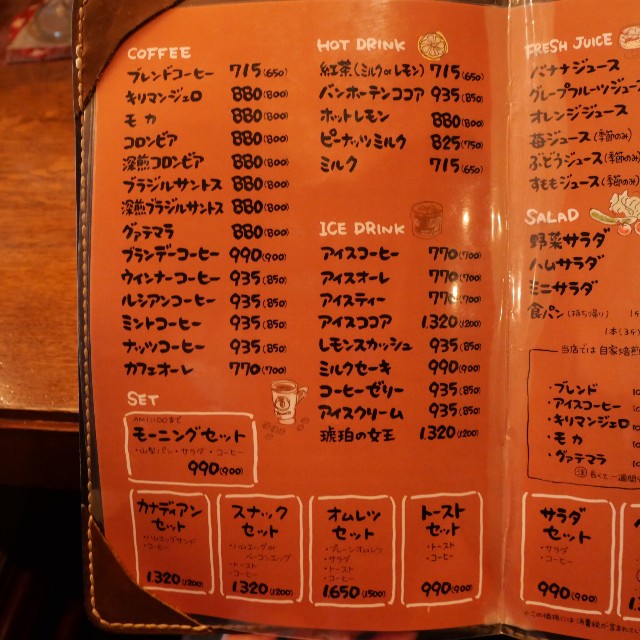 COFFEE
ブレンドコーヒー 715(650)
キリマンジェロ 880(800)
モカ 880(800)
コロンビア 880(800)
深煎コロンビア 880(800)
ブラジルサントス 880(800)
深煎ブラジルサントス 880(800)
グァテマラ 880(800)
ブランデーコーヒー 990(900)
ウインナーコーヒー 935(850)
ルシアンコーヒー 935(850)
ミントコーヒー 935(850)
ナッツコーヒー 935(850)
カフェオーレ 770(700)
SET
AM11:00まで
モーニングセット
・山型パン・サラダ・コーヒー
990(900)
カナディアンセット
・ハムエッグサンド
・コーヒー
1.320(1200)
スナックセット
・ハムエッグor
ベーコンエッグ
・トースト
・コーヒー
1.320(1200)
オムレツセット
・プレーンオムレツ
・サラダ
・トースト
・コーヒー
1.650(1500)
トーストセット
・トースト
・コーヒー
990(900)
HOT DRINK
紅茶(ミルクorレモン) 715(650)
バンホーテンココア 935(850)
ホットレモン 880(800)
ピーナッツミルク 825(750)
ミルク 715(650)
ICE DRINK
アイスコーヒー 770(700)
アイスオーレ 770(700)
アイスティー 770(700)
アイスココア 1.320(1200)
レモンスカッシュ 935(850)
ミルクセーキ 990(900)
コーヒーゼリー 935(850)
アイスクリーム 935(850)
琥珀の女王 1.320(1200)
FRESH JUICE
バナナジュース
グレープフルーツジュース
オレンジジュース
苺ジュース(季節のみ)
ぶどうジュース(季節のみ)
すももジュース(季節のみ)
SALAD
野菜サラダ
ハムサラダ
ミニサラダ
食パン(持ち帰り)
1本(3斤
当店では自家焙煎
・ブレンド
・アイスコーヒー
・キリマンジェロ
・モカ
・グァテマラ
注 長くて一週間
サラダセット
・サラダ
・コーヒー
990(900)
※この価格には消費税が含まれ